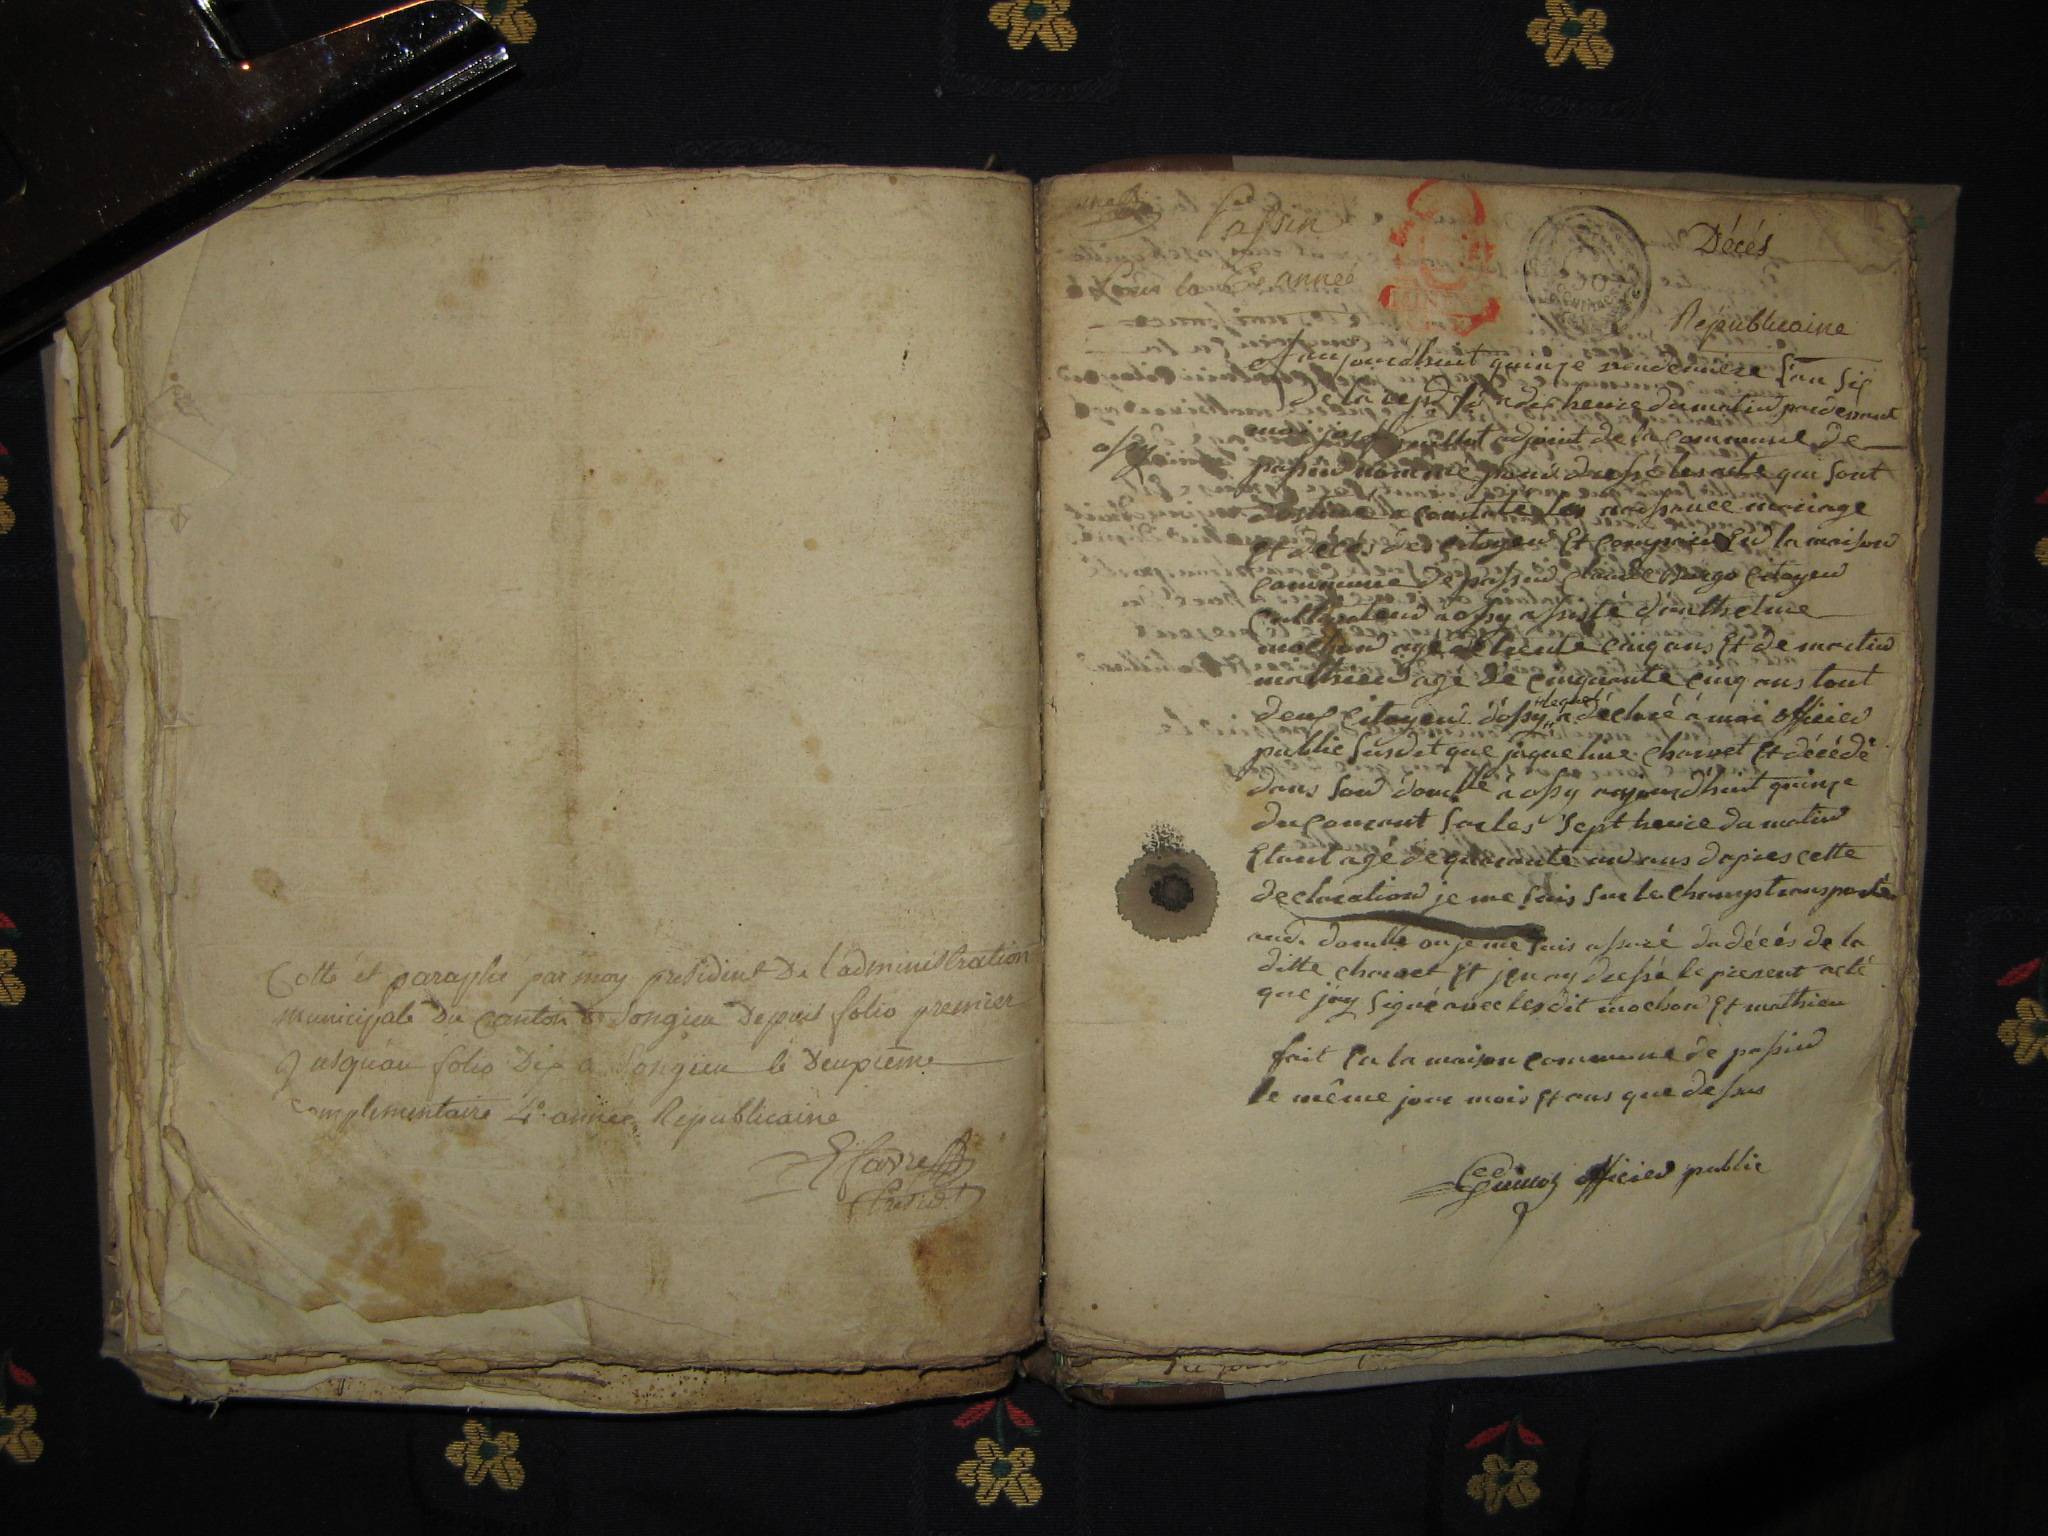 Cotté et paraphé par moy president De l'administration
municipale Du Canton de Songieu Depuis folio premier
Jusqu'au folio Dix a Songieu le Deuxième
complimentaire 4e année Republicaine
Presidt
Passin
Décés
Pour la année
Républicaine
aujourdhuit quinze vendemiere Lan Six
de la rep dix heure du matin pardevant
moi josph adjoint de la Commune de
ossy
passin nommé pour dressé les acte qui sont
a constaté les naissance mariage
Et décés des citoyen Et comparu En la maison
Commune de passin Claude citoyen
Cultivateur a ossy assisté danthelme
mochon agé de trente cinq ans Et de martin
mathieu agé de cinquante cinq ans tout
lequel
deux Citoyen dossy a déclaré a moi officier
public susdit que jaqueline charvet Et décédé
dans son domlle a ossy aujourdhuit quinze
du courant sur les sept heure du matin
Etant agé de quarante ans dapres cette
declaration je me suis sur le champ transporté
aud. domlle ou je me suis assuré du décés de la
ditte charvet Et jen ay dressé le present acte
que jay signé avec lesdit mochon Et mathieu
fait En la maison commune de passin
le même jour mois Et ans que dessus
officier public